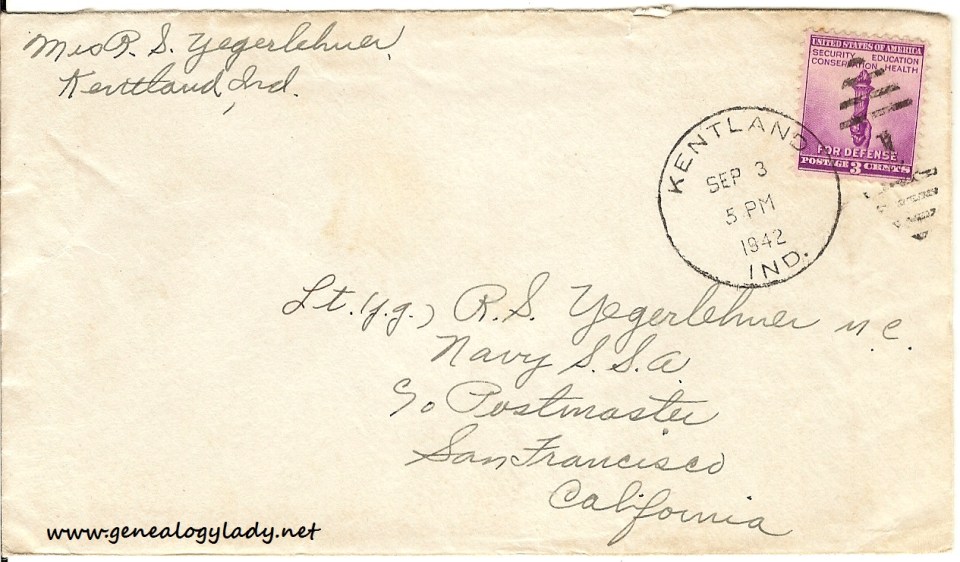 Mrs R. S. Yegerlehner
Kentland, Ind.
UNITED STATES OF AMERICA
SECURITY EDUCATION
CONSERVATION HEALTH
FOR DEFENSE
POSTAGE 3 CENTS
KENTLAND
SEP 3
5 PM
1942
IND.
Lt. (j.g.) R. S. Yegerlehner M C.
Navy S.S.A.
c/o Postmaster
San Francisco
California
www.genealogylady.net